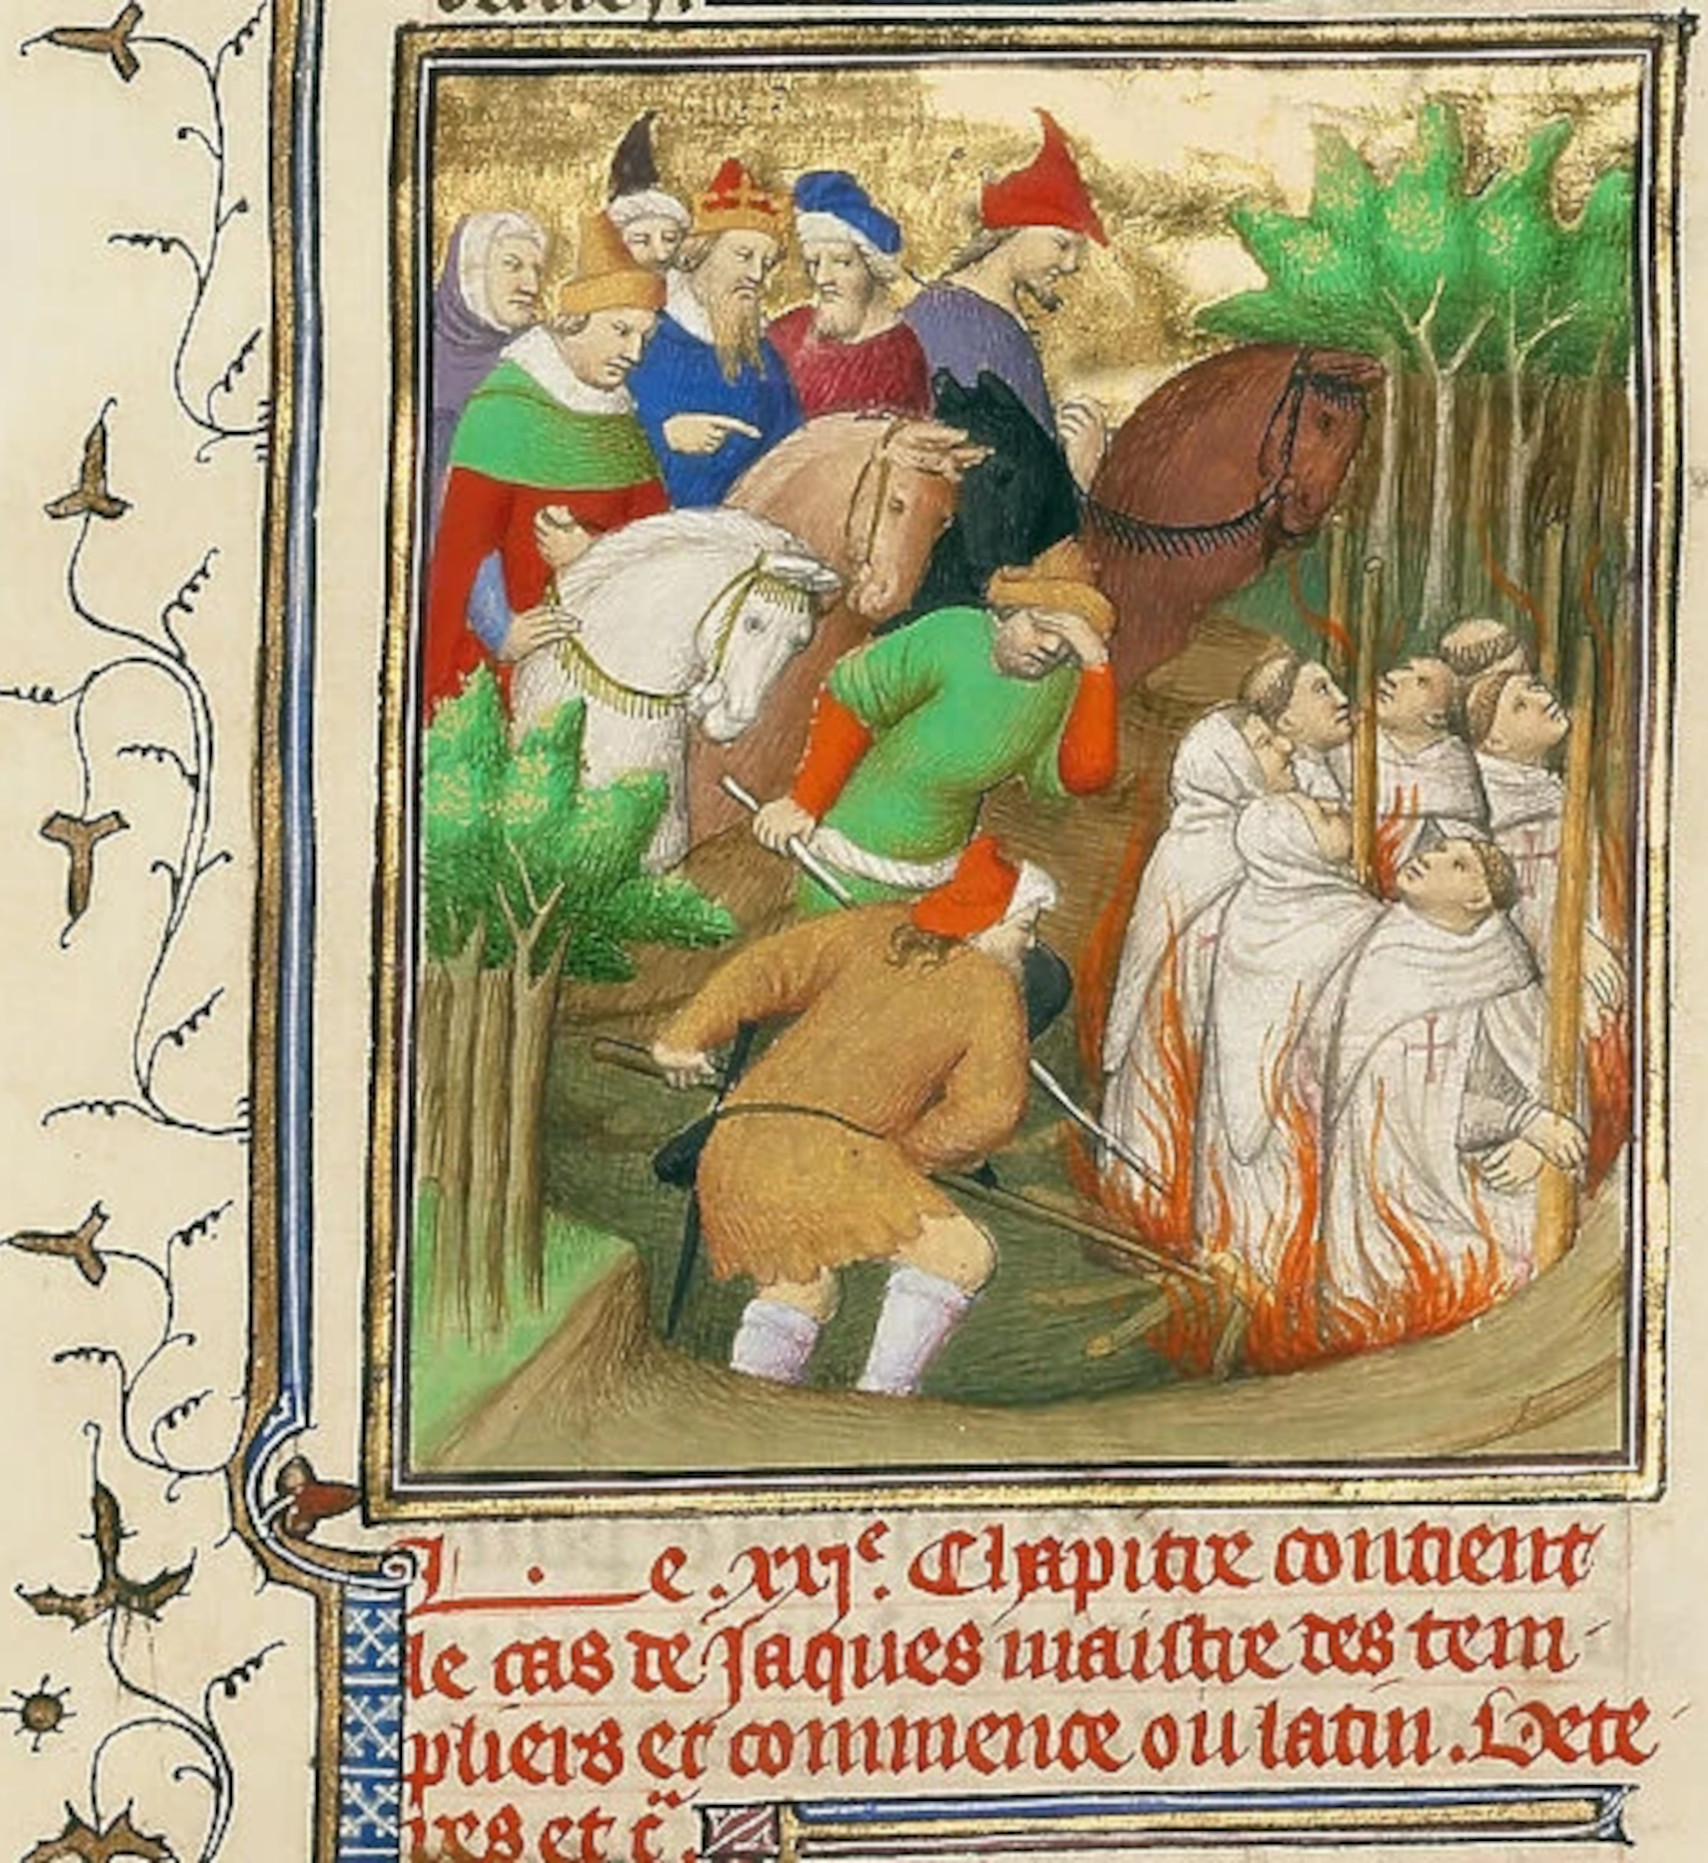 L e .xxj<sup>e</sup>. Chapitre contient
le cas de Jaques maistre des tem-
pliers et commence ou latin. Dete
ires et c̈.